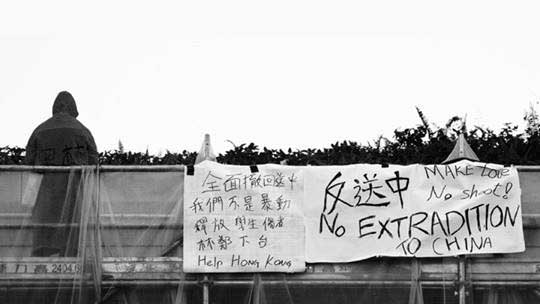 全面撤回送中
我們不是暴動
釋放學生傷者
林鄭下台
Help Hong Kong
反送中
MAKE LOVE
No shoot!
No EXTRADITION
TO CHINA